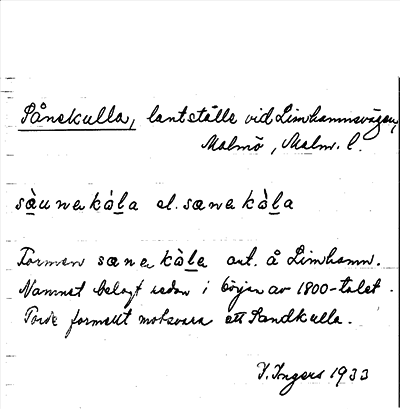 Sånekulla, lantställe vid Limhamnsvägen,
Malmö, Malm. l.
sàunakåla el. sænakåla
Formen sænakåla ant. å Limhamn.
Namnet belagt redan i början av 1800-talet.
Torde formellt motsvara ett Sandkulla.
I. Ingers 1933